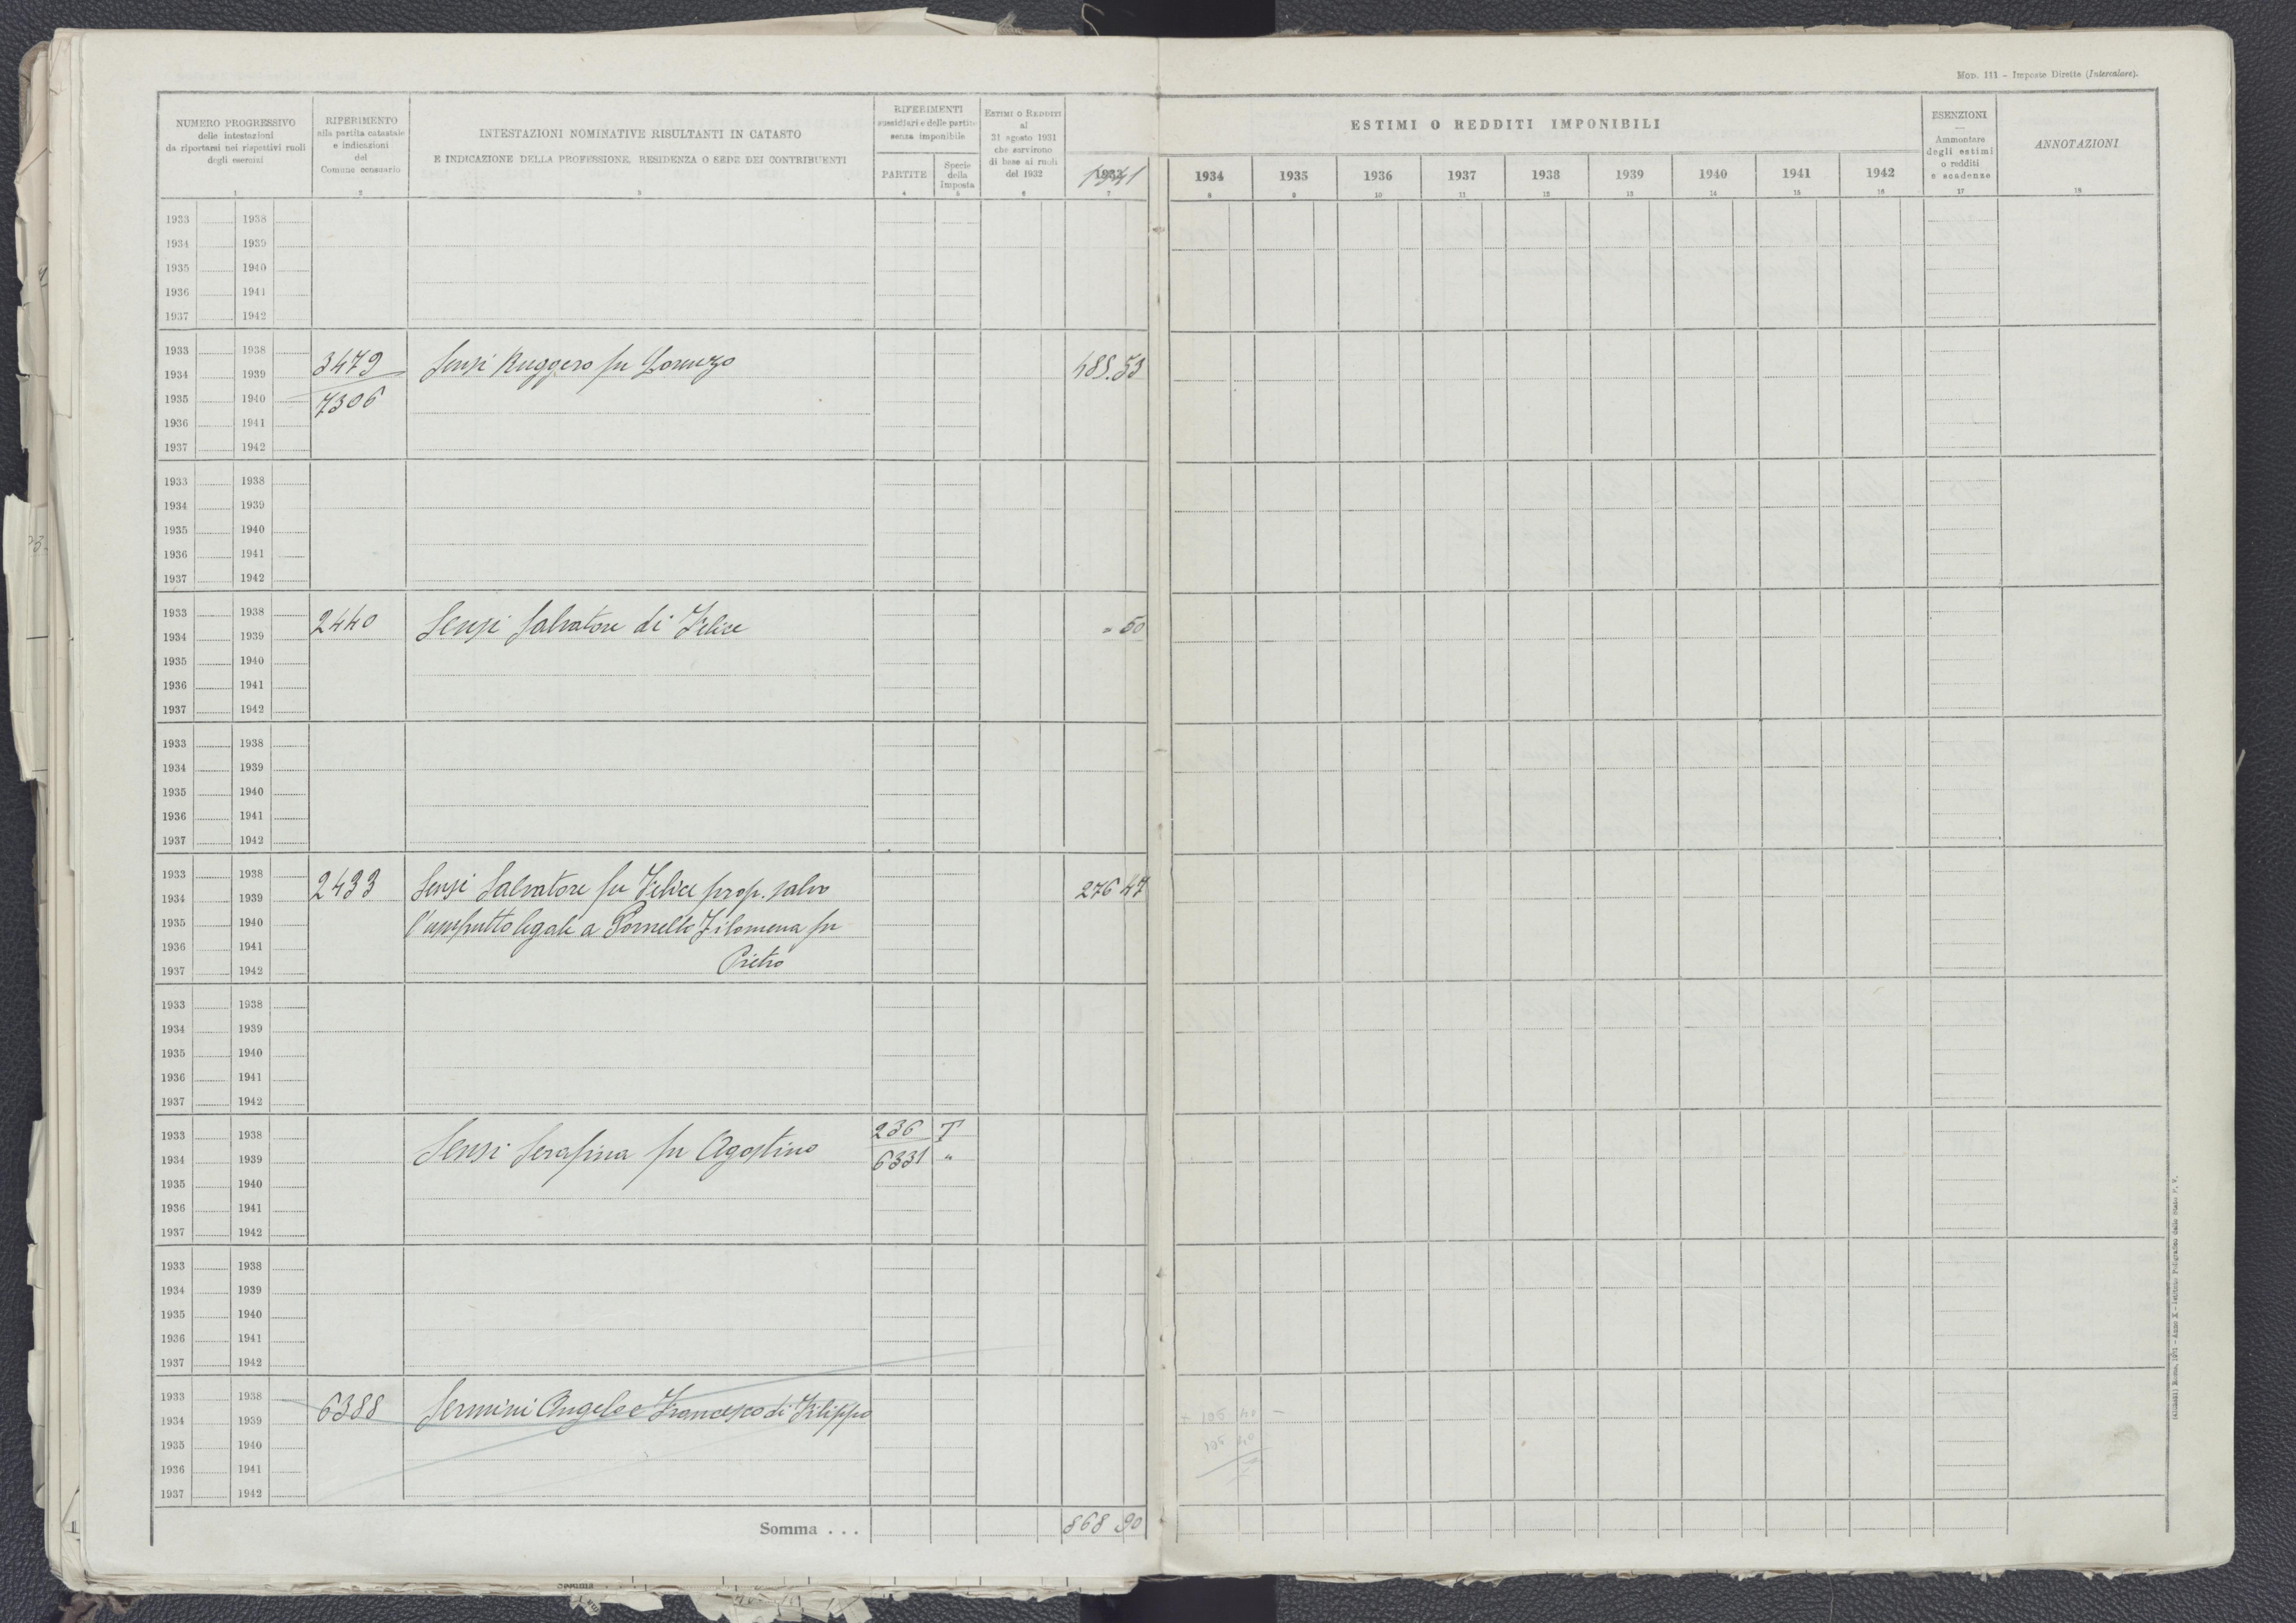 Mod. 111 - Imposte Dirette (Intercalare).
NUMERO PROGRESSIVO
delle intestazioni
da riportarsi nei rispettivi ruoli
degli esercizi
1
RIFERIMENTO
alla partita catastale
e indicazioni
del
Comune censuario
2
INTESTAZIONI NOMINATIVE RISULTANTI IN CATASTO
E INDICAZIONE DELLA PROFESSIONE, RESIDENZA O SEDE DEI CONTRIBUENTI
3
RIFERIMENTI
sussidiari e delle partite
senza imponibile
PARTITE
4
Specie
della
Imposta
5
ESTIMI O REDDITI
al
31 agosto 1931
che servirono
di base ai ruoli
del 1932
6
1941
7
ESTIMI O REDDITI IMPONIBILI
1934 1935 1936 1937 1938 1939 1940 1941 1942
8 9 10 11 12 13 14 15 16
ESENZIONI
Ammontare
degli estimi
o redditi
e scadenze
17
ANNOTAZIONI
18
1933 1938
1934 1939
1935 1940
1936 1941
1937 1942
1933 1938
1934 1939 3479 Sensi Ruggero fu Lorenzo 485.53
1935 1940 7306
1936 1941
1937 1942
1933 1938
1934 1939
1935 1940
1936 1941
1937 1942
1933 1938
1934 1939 2440 Sensi Salvatore di Felice " 50
1935 1940
1936 1941
1937 1942
1933 1938
1934 1939
1935 1940
1936 1941
1937 1942
1933 1938
1934 1939 2433 Sensi Salvatore fu Felice prop. salvo 276 47
1935 1940 l'usufrutto legale a Filomena fu
1936 1941
1937 1942 Pietro
1933 1938
1934 1939
1935 1940
1936 1941
1937 1942
1933 1938 236 T
1934 1939 Sensi Serafina fu Agostino 6331 "
1935 1940
1936 1941
1937 1942
1933 1938
1934 1939
1935 1940
1936 1941
1937 1942
1933 1938
1934 1939 6388 Sermini Angelo e Francesco di Filippo
1935 1940
1936 1941
1937 1942
Somma . . . 868 90